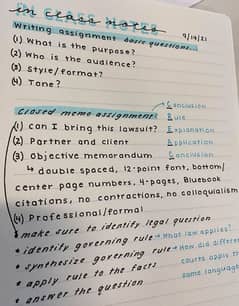 in class notes
9/14/21
writing assignment basic questions...
(1) What is the purpose?
(2) Who is the audience?
(3) Style/format?
(4) Tone?
closed memo assignment
Conclusion
Rule
Explanation
Application
Conclusion
(1) can I bring this lawsuit?
(2) Partner and client
(3) Objective memorandum
↳ double spaced, 12-point font, bottom/
center page numbers, 4-pages, Bluebook
citations, no contractions, no colloquialism
(4) Professional/formal
• make sure to identify legal question
• identify governing rule → What law applies?
• synthesize governing rule → How did different
courts apply th
same language
• apply rule to the facts
• answer the question